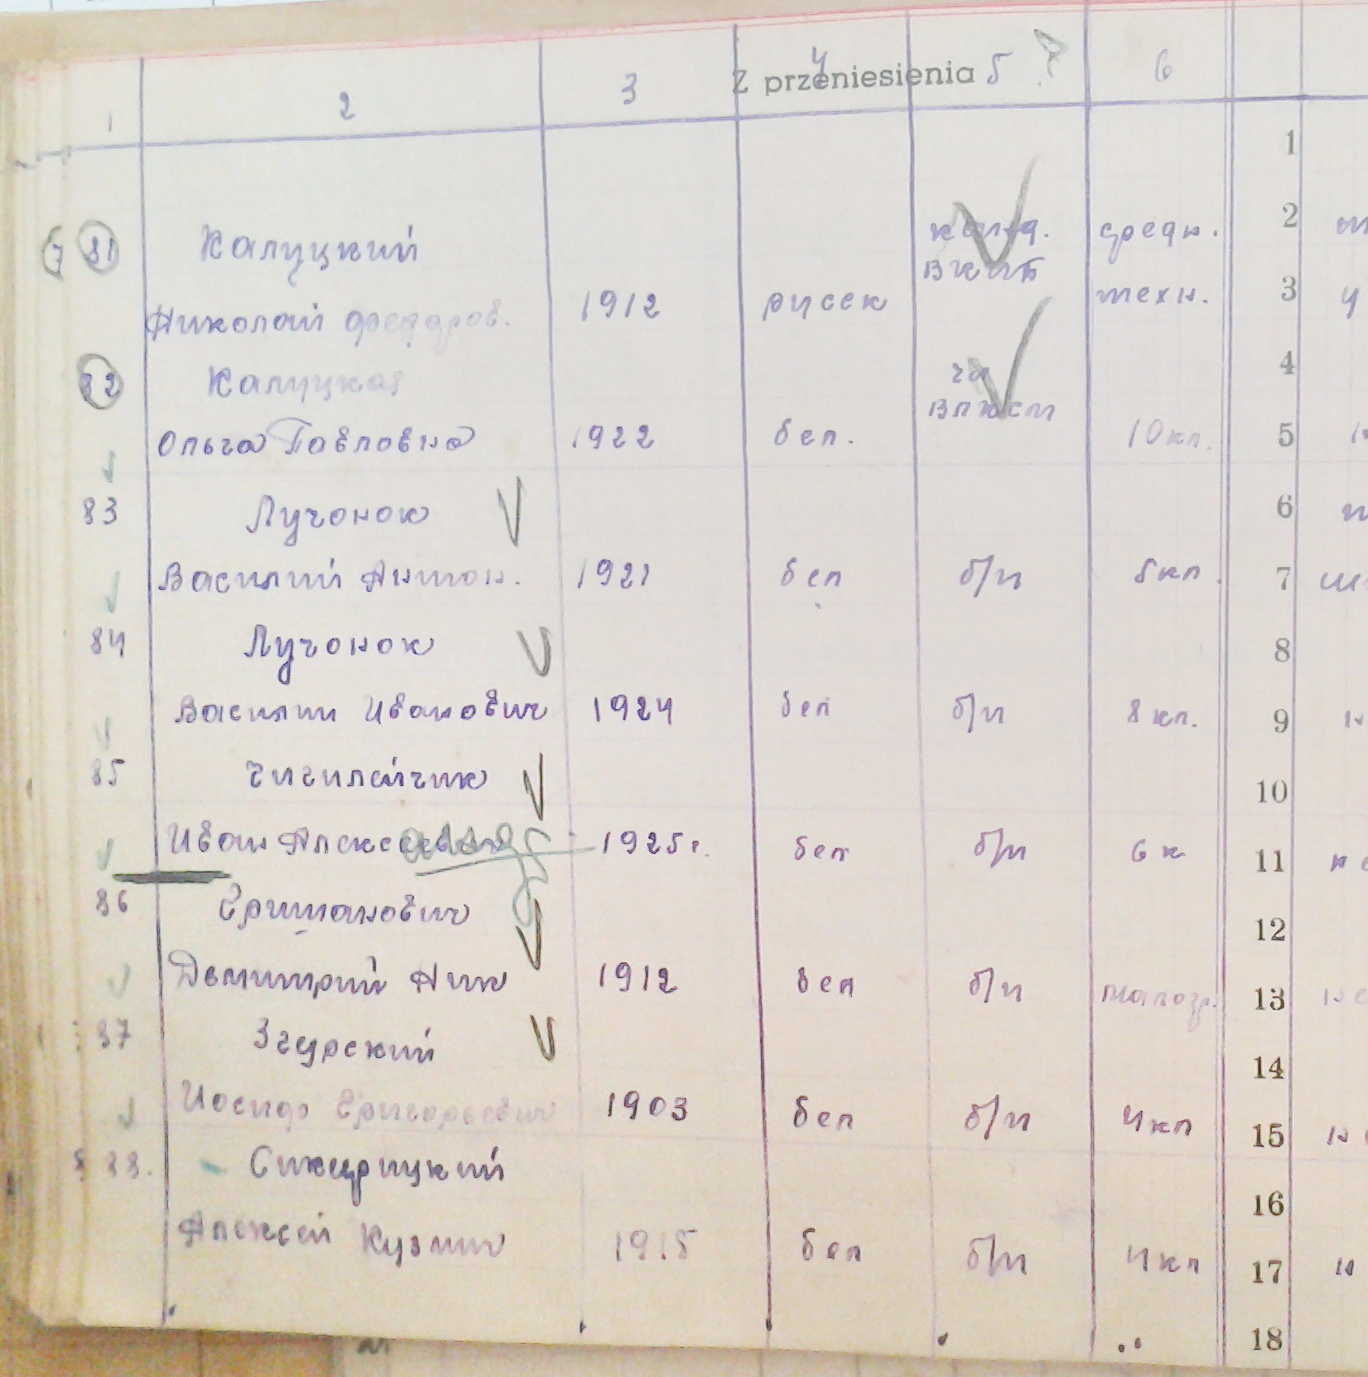 Z przeniesienia
1 2 3 4 5 6
1
81 Калуцкий канд. средн. 2
Николай Федоров. 1912 русск ВКПб техн. 3
82 Калуцкая чл 4
Ольга Павловна 1922 бел. ВЛКСМ 10 кл. 5
83 Лучонок 6
Василий Антон. 1921 бел б/п 5 кл. 7
84 Лучонок 8
Василии Иванович 1924 бел б/п 8 кл. 9
85 Чигилейчик 10
Иван Алексеевич 1925 г. бел б/п 6 к 11
86 Гришанович 12
Демитрий Ник 1912 бел б/п малогр. 13
87 Згурский 14
Иосиф Григорьевич 1903 бел б/п 4 кл 15
88. Сикирицкий 16
Алексей Кузмич 1915 бел б/п 4 кл 17
18